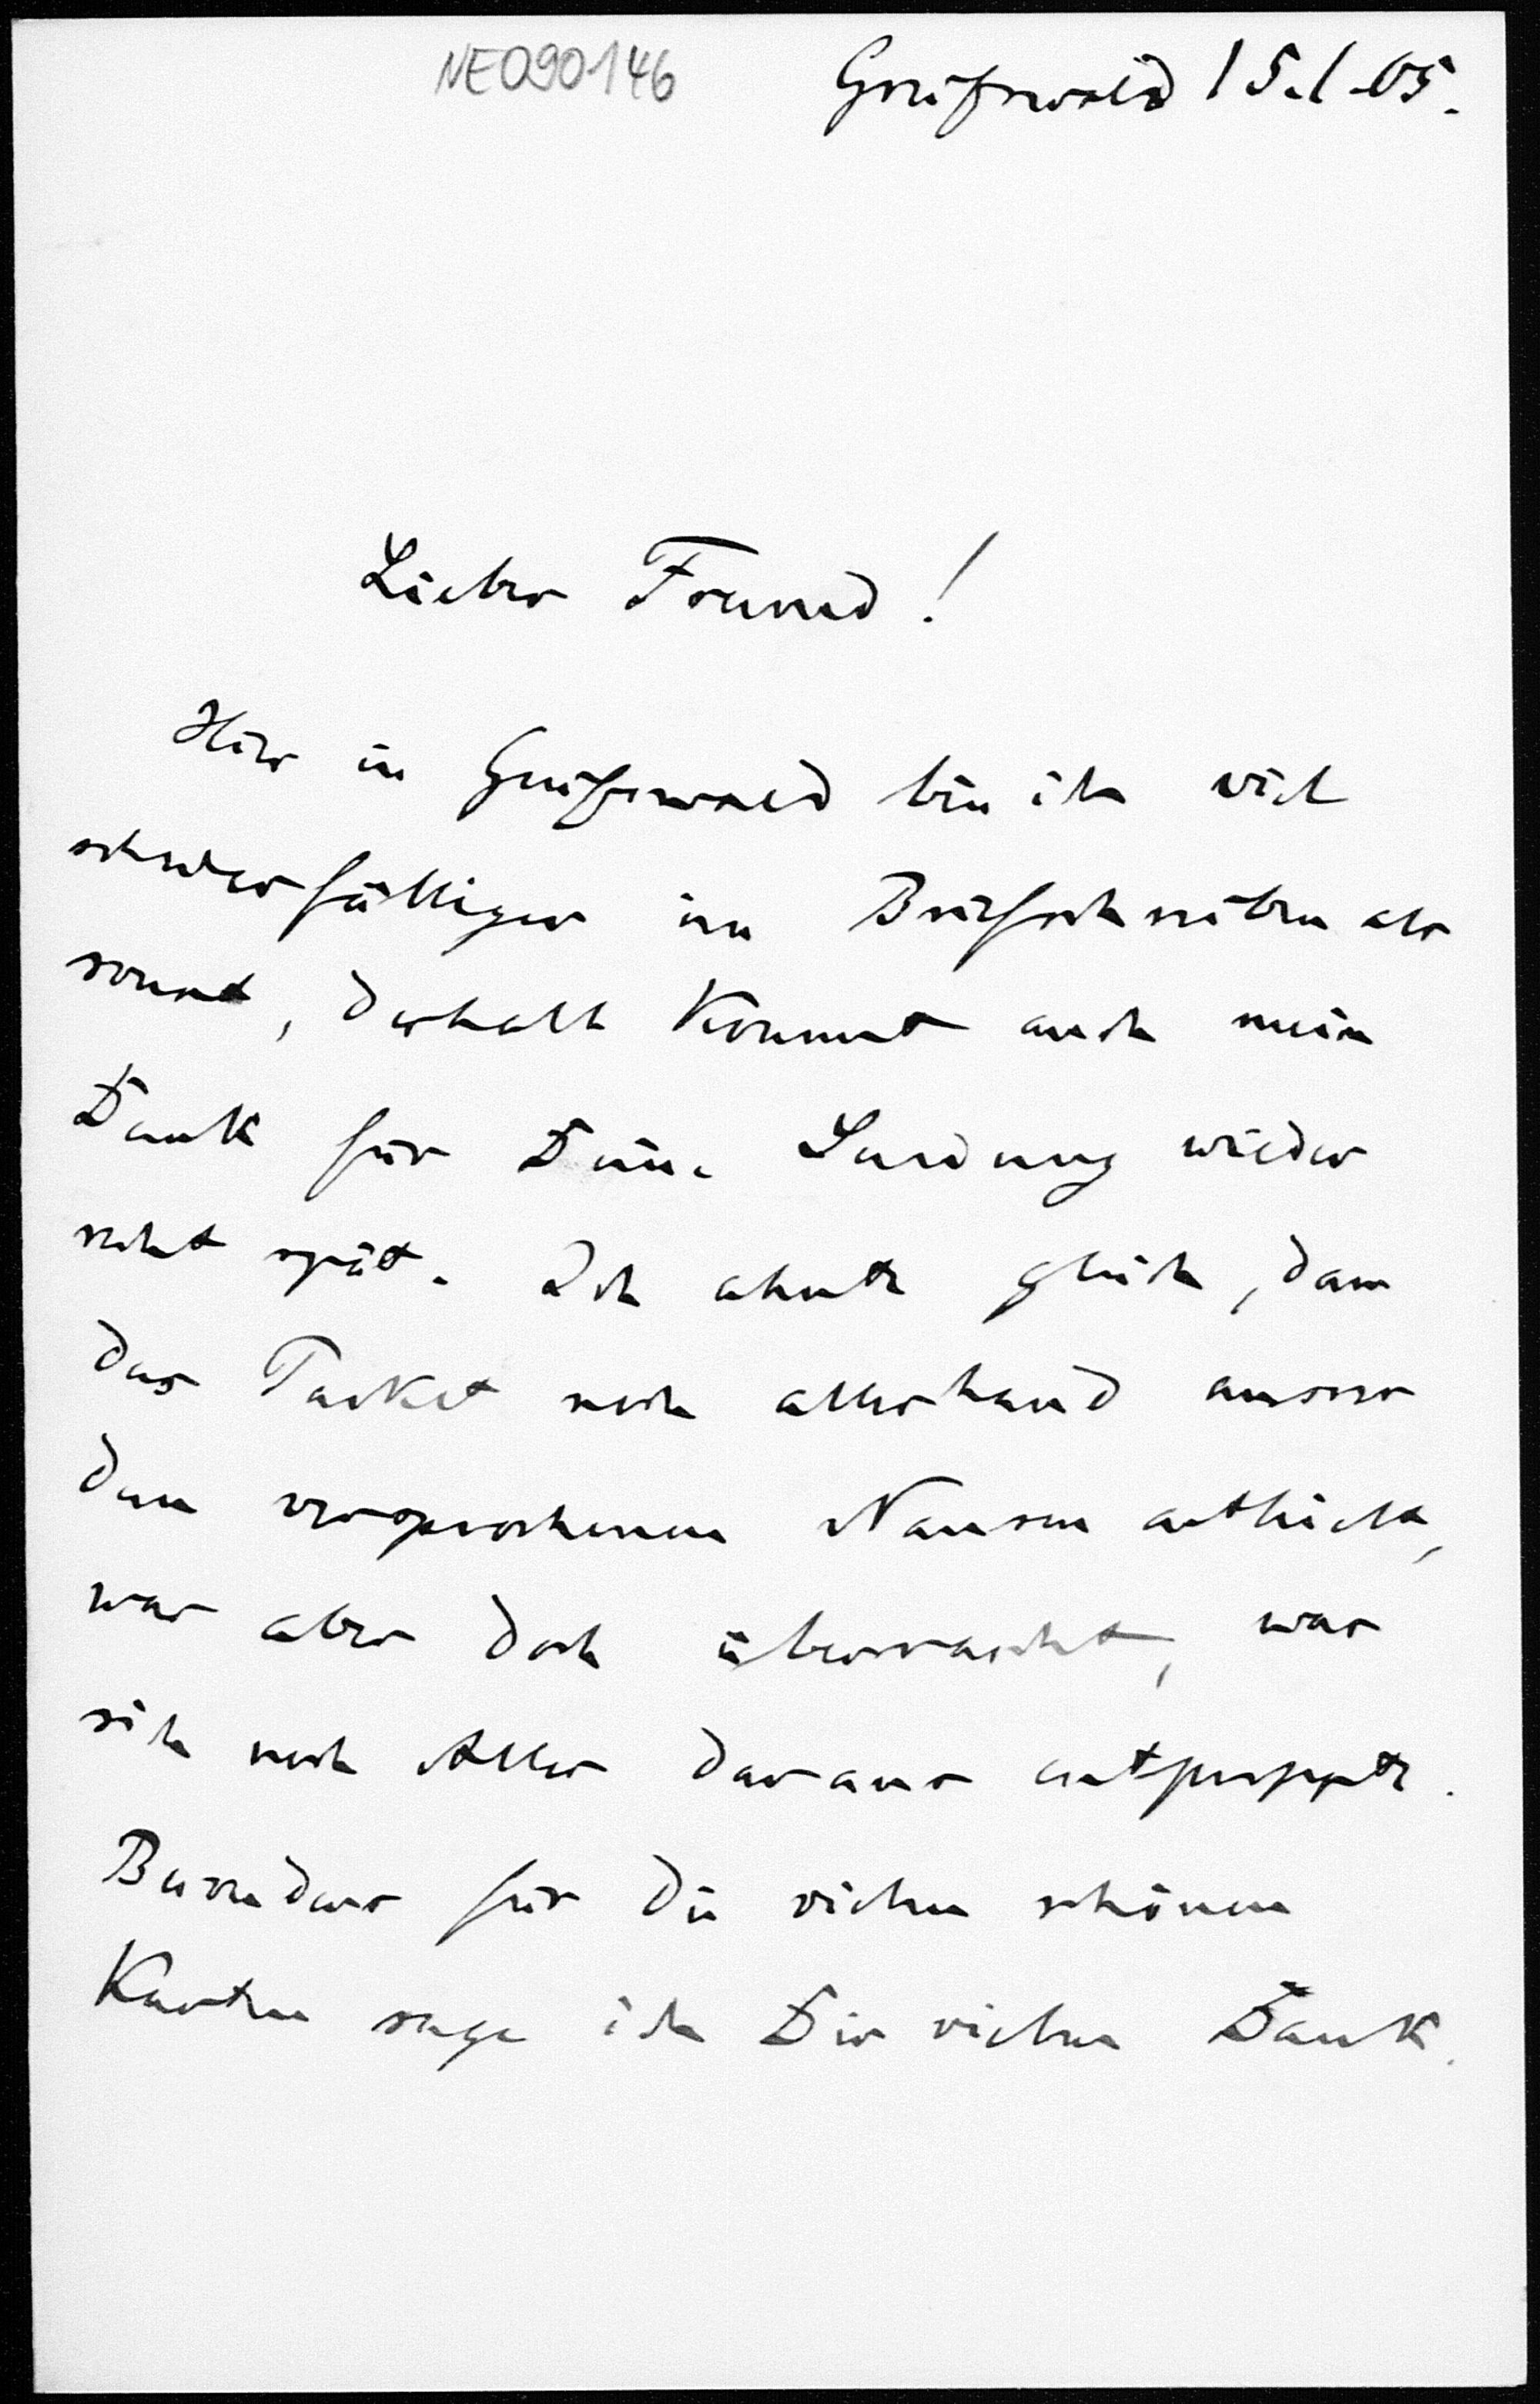 NE090146
Greifswald 15.1.05.
Lieber Freund!
Hier in Greifswald bin ich viel
schwerfälliger im Briefschreiben als
sonst, deshalb kommt auch mein
Dank für Deine Sendung wieder
recht spät. Ich ahnte gleich, dass
das Packet noch allerhand ausser
dem versprochenen Nansen enthielt,
war aber doch überrascht, was
sich noch Alles daraus entpuppte.
Besonders für die vielen schönen
Karten sage ich Dir vielen Dank.